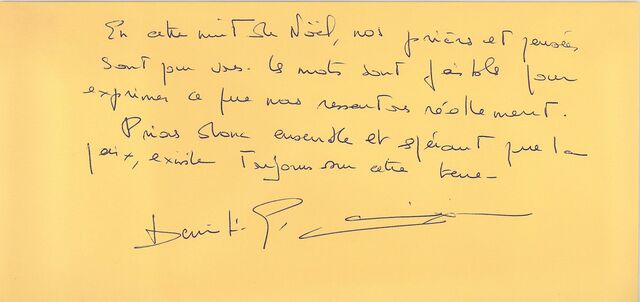 En cette nuit de Noël, nos prières et pensées
sont pour vous. Les mots sont faible pour
exprimer ce que nous ressentons réellement.
Prions donc ensemble et espérant que la
paix, existe toujours sur cette terre -